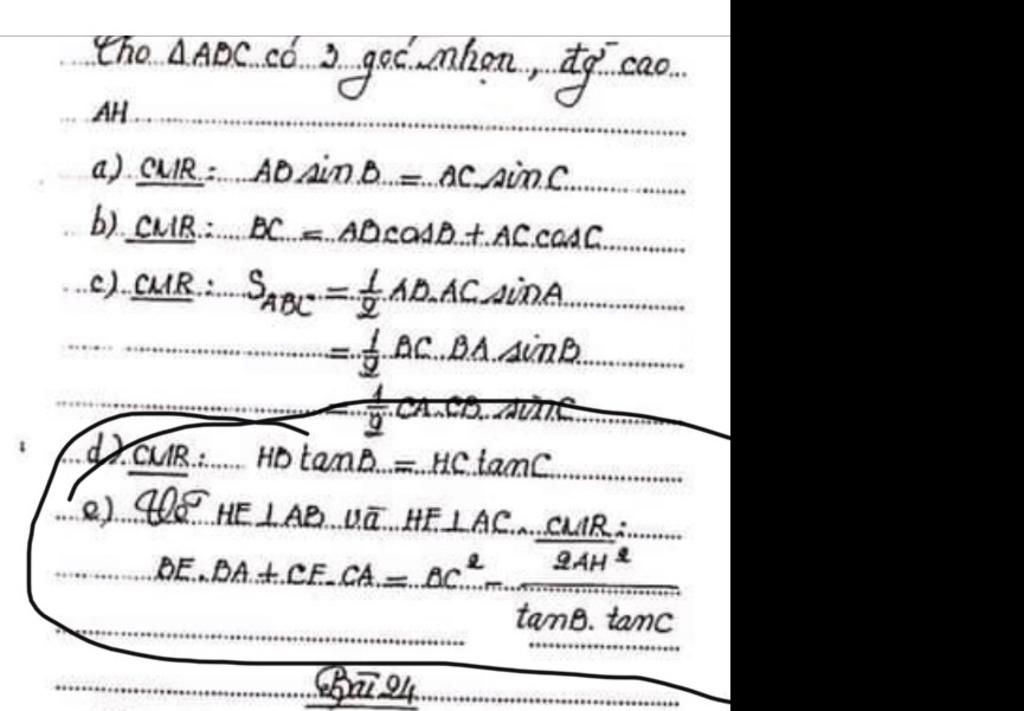 Cho ΔABC có 3 góc nhọn, đg̃ cao
AH
a) CMR: AB sinB = AC sinC
b) CMR: BC = ABcosB + AC cosC
c) CMR: S_ABC = 1/2 AB.AC sinA
= 1/2 BC.BA sinB
= 1/2 CA.CB.sinC
d) CMR: HB tanB = HC tanC
e) Vẽ HE⊥AB và HF⊥AC. CMR:
BE.BA + CF.CA = BC² - 2AH² / tanB.tanC
Bài 24